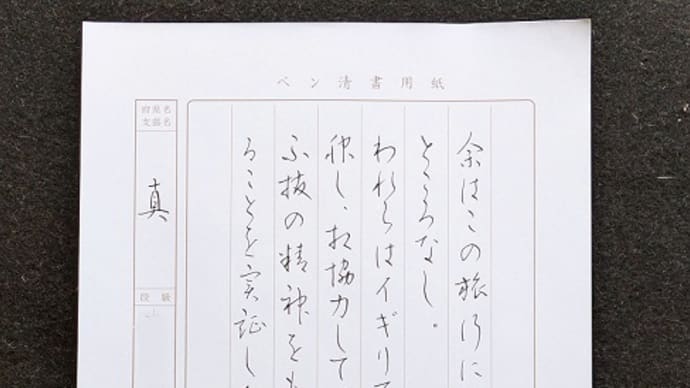 ペン清書用紙
余はこの旅行に
ところなし。
われらはイギリス
し、相協力して
不抜の精神をも
ることを実証し
府県名
支部名
真
段級